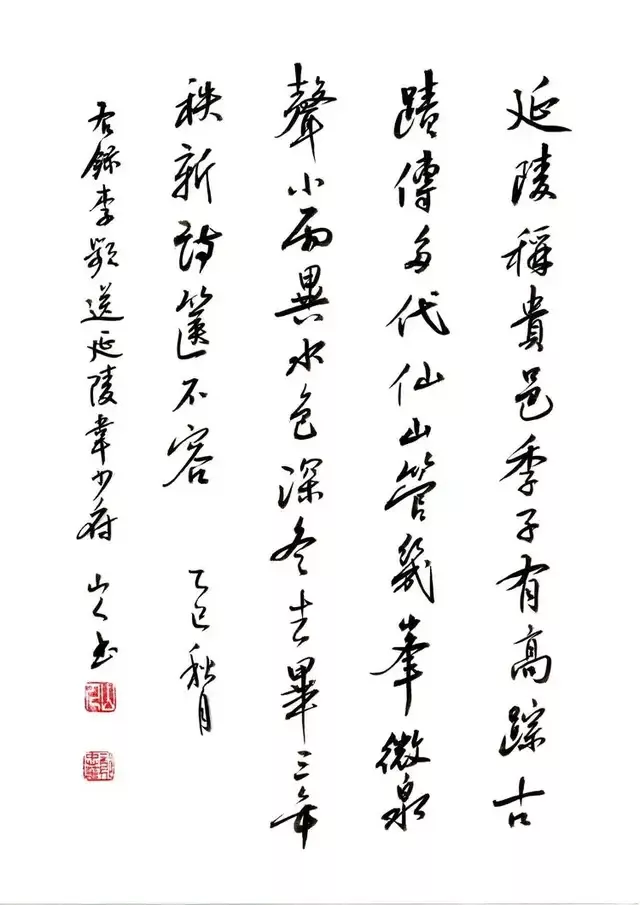 延陵稱貴邑季子有高踪古
蹟傳多代仙山管幾峯微泉
聲小雨異水色深冬去畢三年
秩新詩篋不容 乙巳秋月
右錄李頻送延陵韋少府 山人書